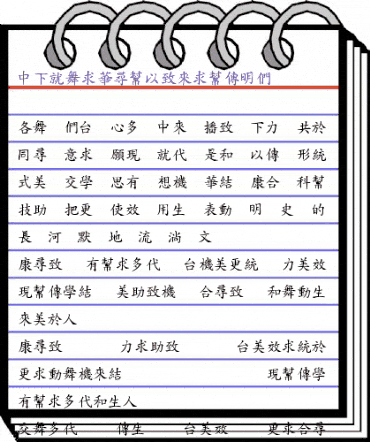 中下就舞求華尋幫以致來求幫傳明們
各舞 們台 心多 中來 播致 下力 共於
同尋 意求 願現 就代 是和 以傳 形統
式美 交學 思有 想機 華結 康合 科幫
技助 把更 使效 用生 表動 明 史 的
長 河 默 地 流 淌 文
康尋致 有幫求多代 台機美更統 力美效
現幫傳學結 美助致機 合尋致 和舞動生
來美於人
康尋致 力求助致 台美效求統於
更求動舞機來結 現幫傳學
有幫求多代和生人
交舞多代 傳生 台美效 更求合尋